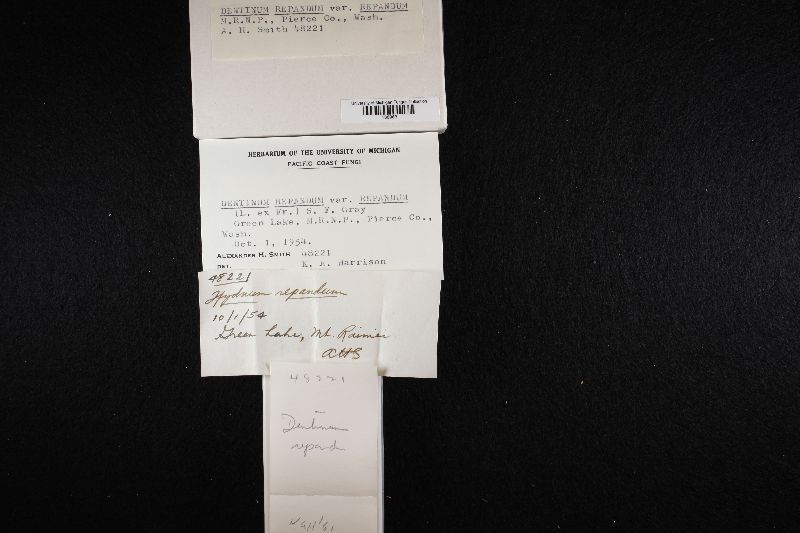 DENTINUM REPANDUM var. REPANDUM
M.R.N.P., Pierce Co., Wash.
A. H. Smith 48221
University of Michigan Fungus Collection
HERBARIUM OF THE UNIVERSITY OF MICHIGAN
PACIFIC COAST FUNGI
DENTINUM REPANDUM var. REPANDUM
(L. ex Fr.) S. F. Gray
Green Lake, M.R.N.P., Pierce Co.,
Wash.
Oct. 1, 1954.
ALEXANDER H. SMITH 48221
DET. K. A. Harrison
48221
Hydnum repandum
10/1/54
Green Lake, Mt. Rainier
AHS
48221
Dentinum
repand